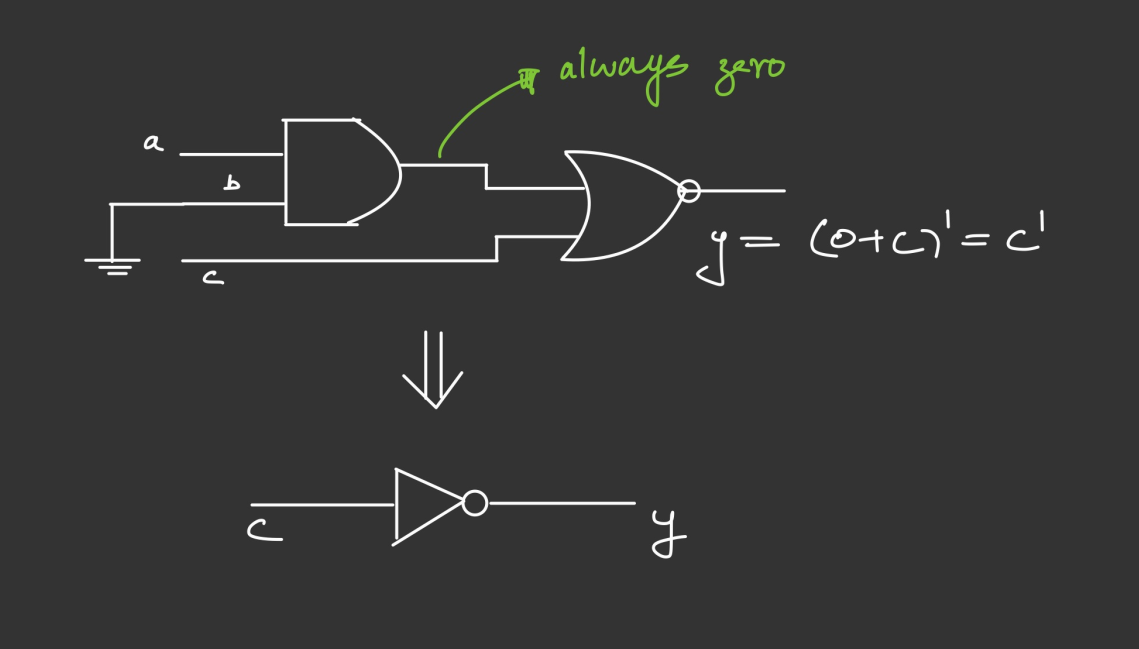 always zero
a
b
c
y = (0+c)' = c'
c
y